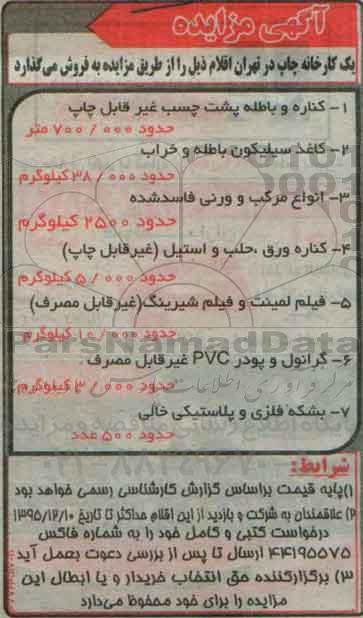 آگهی مزایده
یک کارخانه چاپ در تهران اقلام ذیل را از طریق مزایده به فروش می‌گذارد
۱- کناره و باطله پشت چسب غیر قابل چاپ
حدود ۷۰۰/۰۰۰ متر
۲- کاغذ سیلیکون باطله و خراب
حدود ۳۸/۰۰۰ کیلوگرم
۳- انواع مرکب و ورنی فاسدشده
حدود ۲۵۰۰ کیلوگرم
۴- کناره ورق ،حلب و استیل (غیرقابل چاپ)
حدود ۵/۰۰۰ کیلوگرم
۵- فیلم لمینت و فیلم شیرینگ(غیرقابل مصرف)
حدود ۱۰/۰۰۰ کیلوگرم
۶- گرانول و پودر PVC غیرقابل مصرف
حدود ۳/۰۰۰ کیلوگرم
۷- بشکه فلزی و پلاستیکی خالی
حدود ۵۰۰ عدد
شرایط:
۱)پایه قیمت براساس گزارش کارشناسی رسمی خواهد بود
۲) علاقمندان به شرکت و بازدید از این اقلام حداکثر تا تاریخ ۱۳۹۵/۱۲/۱۰
درخواست کتبی و کامل خود را به شماره فاکس
۴۴۱۹۵۵۷۵ ارسال تا پس از بررسی دعوت بعمل آید
۳) برگزارکننده حق انتخاب خریدار و یا ابطال این
مزایده را برای خود محفوظ می‌دارد
ParsNamadData